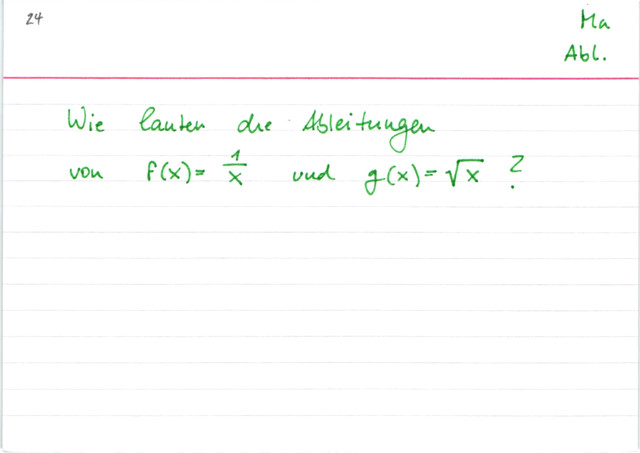 24
Ma
Abl.
Wie lauten die Ableitungen
von f(x)= 1/x und g(x)= √x ?